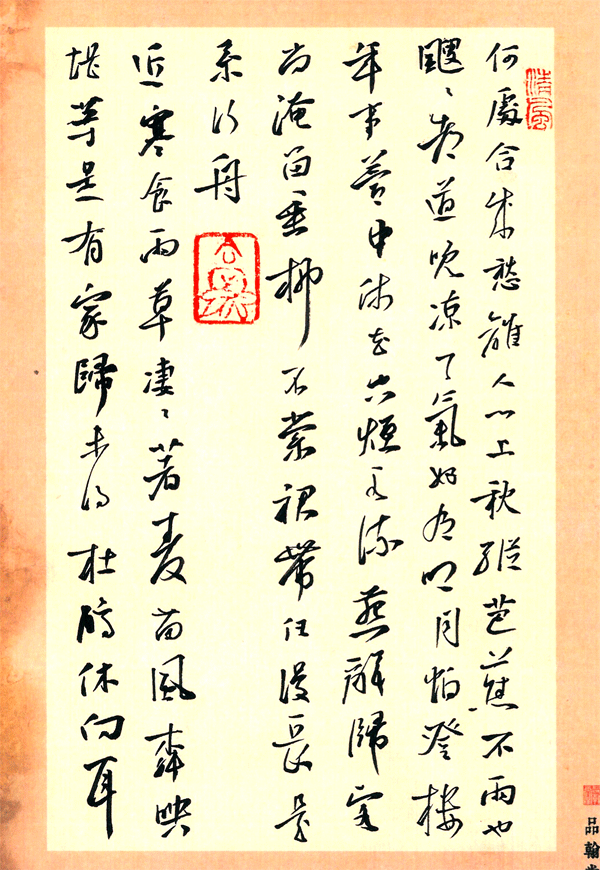 何處合成愁離人心上秋縱芭蕉不雨也
颼〻都道晚涼天氣好有明月怕登樓
年事夢中休花空煙水流燕辭歸客
尚淹留垂柳不縈裙帶住漫長是
系行舟
近寒食雨草淒〻著麥苗風柳映
堤等是有家歸未得杜鵑休向耳
清風
品翰